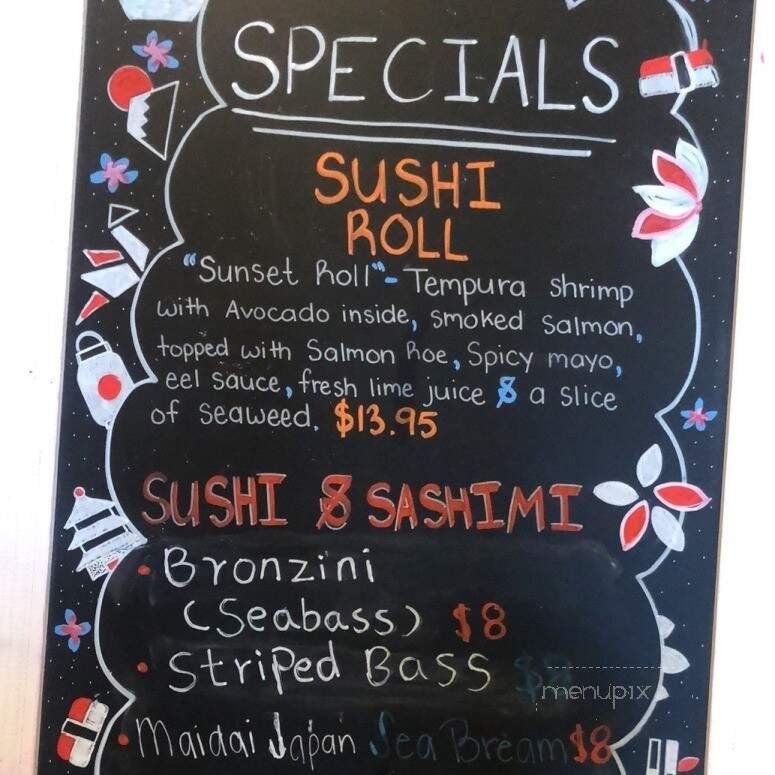 SPECIALS
SUSHI
ROLL
"Sunset Roll"- Tempura shrimp
with Avocado inside, smoked Salmon,
topped with Salmon Roe, Spicy mayo,
eel sauce, fresh lime juice & a slice
of seaweed. $13.95
SUSHI & SASHIMI
• Bronzini
(Seabass) $8
• Striped Bass $8
menupix
• Maidai Japan Sea Bream $8